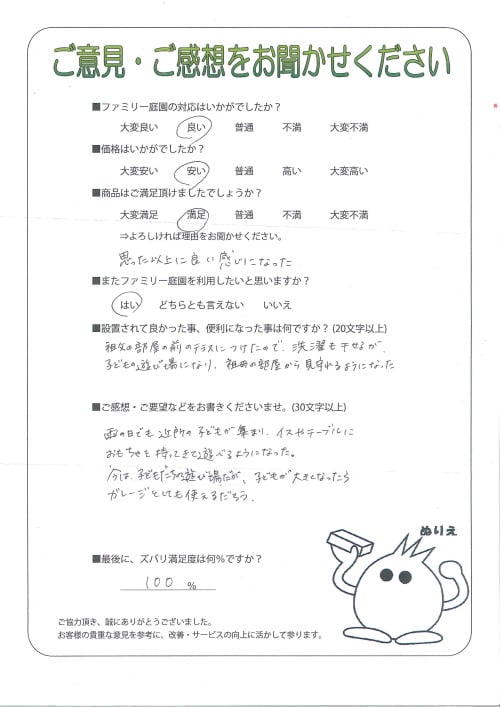 ご意見・ご感想をお聞かせください
■ファミリー庭園の対応はいかがでしたか？
大変良い 良い 普通 不満 大変不満
■価格はいかがでしたか？
大変安い 安い 普通 高い 大変高い
■商品はご満足頂けましたでしょうか？
大変満足 満足 普通 不満 大変不満
⇒よろしければ理由をお聞かせください。
思った以上に良い感じになった
■またファミリー庭園を利用したいと思いますか？
はい どちらとも言えない いいえ
■設置されて良かった事、便利になった事は何ですか？(20文字以上)
祖父の部屋の前のテラスにつけたので、洗濯も干せるが、
子どもの遊び場になり、祖母の部屋から見守れるようになった
■ご感想・ご要望などをお書きくださいませ。(30文字以上)
雨の日でも近所の子どもが集まり、イスやテーブルに
おもちゃを持ってきて遊べるようになった。
今は、子どもたちの遊び場だが、子どもが大きくなったら
ガレージとしても使えるだろう。
ぬりえ
■最後に、ズバリ満足度は何％ですか？
100 ％
ご協力頂き、誠にありがとうございました。
お客様の貴重な意見を参考に、改善・サービスの向上に活かして参ります。